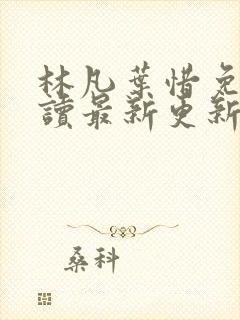 林凡葉惜免
讀最新更新
桑科